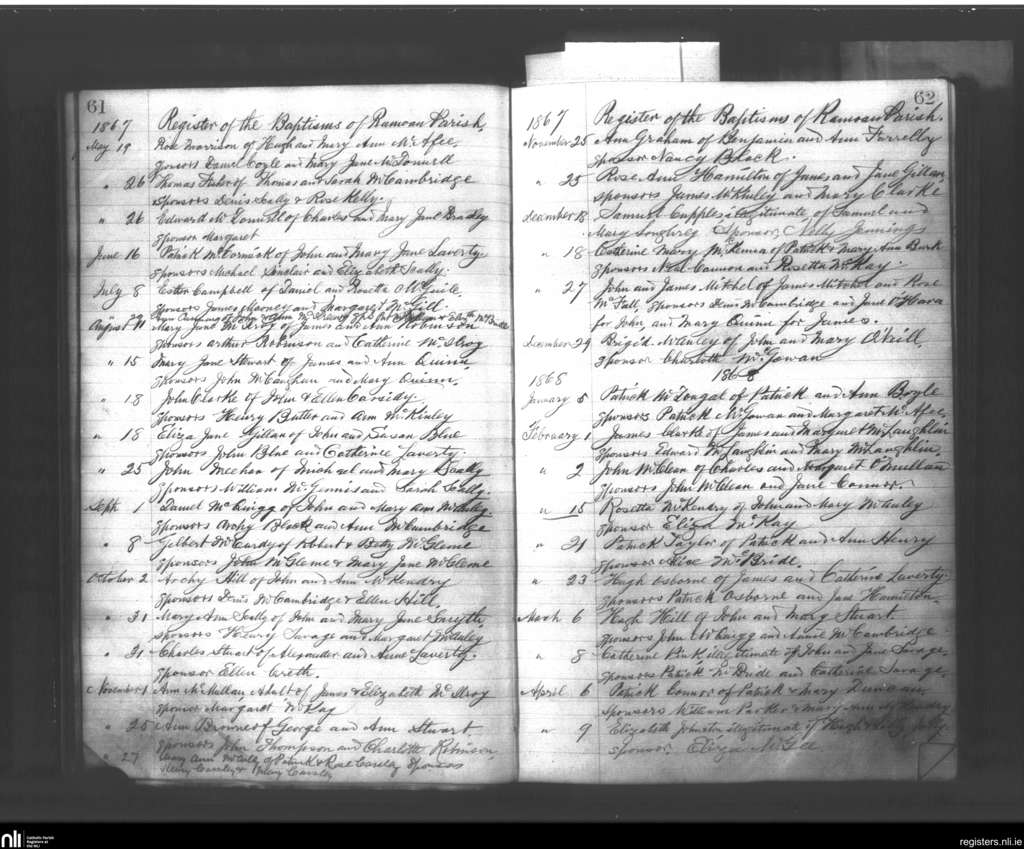 61
1867 Register of the Baptisms of Ramoan Parish.
May 19 Rose Morrison of Hugh and Mary Ann McAfee,
sponsors Daniel Coyle and Mary Jane McConnell
" 26 Thomas Fisher of Thomas and Sarah McCambridge
sponsors Denis Scally & Rose Kelly.
" 26 Edward McConnell of Charles and Mary Jane Bradly
sponsor Margaret
June 16 Patrick McCormick of John and Mary Jane Laverty
sponsors Michael Sinclair and Elizabeth Scally.
July 8 Ester Campbell of Daniel and Rosetta
Sponsors James Mooney and Margaret McGill.
August 11 Mary Jane McIlroy of James and Ann Robinson
sponsors Arthur Robinson and Catherine McIlroy
" 15 Mary Jane Stewart of James and Ann Quinn,
sponsors John McCaughan and Mary Quinn,
" 18 John Clarke of John & Ellen Cassidy.
sponsors Henry Butler and Ann McKinley
" 18 Eliza Jane Gillan of John and Susan Blue
sponsors John Blue and Catherine Laverty.
" 25 John Meehan of Michael and Mary Scally
sponsors William McGinnis and Sarah Scally.
Sept. 1 Daniel McKinigg of John and Mary Ann McAuley
sponsors Archy Black and Ann McCambridge
" 8 Gilbert McCurdy of Robert & Betty McGlerne
sponsors John McGlerne & Mary Jane McGlerne
October 2 Archy Hill of John and Ann McHendry
sponsors Denis McCambridge & Ellen Hill
" 31 Mary Ann Scally of John and Mary Jane Smyth,
sponsors Henry Savage and Margaret McAuley
" 31 Charles Stuart of Alexander and Anne Laverty.
sponsor Ellen
November 1 Ann McMullan Adult of James & Elizabeth McIlroy
sponsor Margaret McKay
" 25 Ann Browne of George and Ann Stuart
sponsors John Thompson and Charlotte Robinson
" 27 Mary Ann of Patrick & Rose Cassley sponsors
Henry Cassley & Mary Cassley
62
1867 Register of the Baptisms of Ramoan Parish.
November 25 Ann Graham of Benjamin and Ann Farrelly
sponsor Nancy Black.
" 25 Rose Ann Hamilton of James and Jane Gillan
sponsors James McKinley and Mary Clarke
December 18 Samuel Cupples illegitimate of Samuel and
Mary Loughrey Sponsor, Nelly Jennings
" 18 Catherine Mary McKenna of Patrick & Mary Ann Burk
sponsors Neal Cannon and Rosetta McKay.
" 27 John and James Mitchel of James Mitchel and Rose
McFall, sponsors Denis McCambridge and Jane O'Hara
for John, and Mary Quinn for James.
December 29 Brigid McAuley of John and Mary O'Neill,
sponsor Charlotte McGowan
1868
1868
January 5 Patrick McDougal of Patrick and Ann Boyle
sponsors Patrick McGowan and Margaret McAfee,
February 1 James Clark of James and Margaret McLaughlin
Sponsors Edward McLaughlin and Mary McLaughlin,
" 2 John McClean of Charles and Margaret O'Mullan
sponsors John McClean and Jane Connor.
" 15 Rosetta McHendry of John and Mary McAuley
sponsor Eliza McKay
" 21 Patrick Taylor of Patrick and Ann Henry
sponsor Alice McBride.
" 23 Hugh Osborne of James and Catherine Laverty.
sponsors Patrick Osborne and Jane Hamilton
March 6 Hugh Hill of John and Mary Stuart
sponsors John McKinigg and Annie McCambridge
" 8 Catherine illegitimate of John and Jane Savage,
sponsors Patrick McBride and Catherine Savage,
April 6 Patrick Connor of Patrick & Mary Duncan,
sponsors William Parker & Mary Ann McHendry
" 9 Elizabeth Johnston illegitimate of Hugh &
sponsor. Eliza McGill
nli
Catholic Parish
Registers at
the NLI
registers.nli.ie